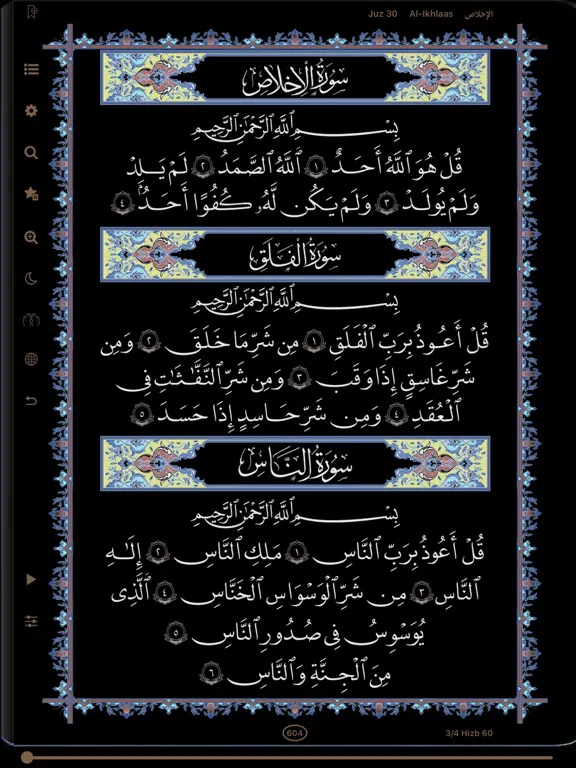 Juz 30 Al-Ikhlaas الإخلاص
سُورَةُ الإِخْلَاصِ
بِسْمِ ٱللَّهِ ٱلرَّحْمَٰنِ ٱلرَّحِيمِ
قُلْ هُوَ ٱللَّهُ أَحَدٌ ١ ٱللَّهُ ٱلصَّمَدُ ٢ لَمْ يَلِدْ
وَلَمْ يُولَدْ ٣ وَلَمْ يَكُن لَّهُۥ كُفُوًا أَحَدٌۢ ٤
سُورَةُ الْفَلَقِ
بِسْمِ ٱللَّهِ ٱلرَّحْمَٰنِ ٱلرَّحِيمِ
قُلْ أَعُوذُ بِرَبِّ ٱلْفَلَقِ ١ مِن شَرِّ مَا خَلَقَ ٢ وَمِن
شَرِّ غَاسِقٍ إِذَا وَقَبَ ٣ وَمِن شَرِّ ٱلنَّفَّٰثَٰتِ فِى
ٱلْعُقَدِ ٤ وَمِن شَرِّ حَاسِدٍ إِذَا حَسَدَ ٥
سُورَةُ النَّاسِ
بِسْمِ ٱللَّهِ ٱلرَّحْمَٰنِ ٱلرَّحِيمِ
قُلْ أَعُوذُ بِرَبِّ ٱلنَّاسِ ١ مَلِكِ ٱلنَّاسِ ٢ إِلَٰهِ
ٱلنَّاسِ ٣ مِن شَرِّ ٱلْوَسْوَاسِ ٱلْخَنَّاسِ ٤ ٱلَّذِى
يُوَسْوِسُ فِى صُدُورِ ٱلنَّاسِ ٥
مِنَ ٱلْجِنَّةِ وَٱلنَّاسِ ٦
604 3/4 Hizb 60